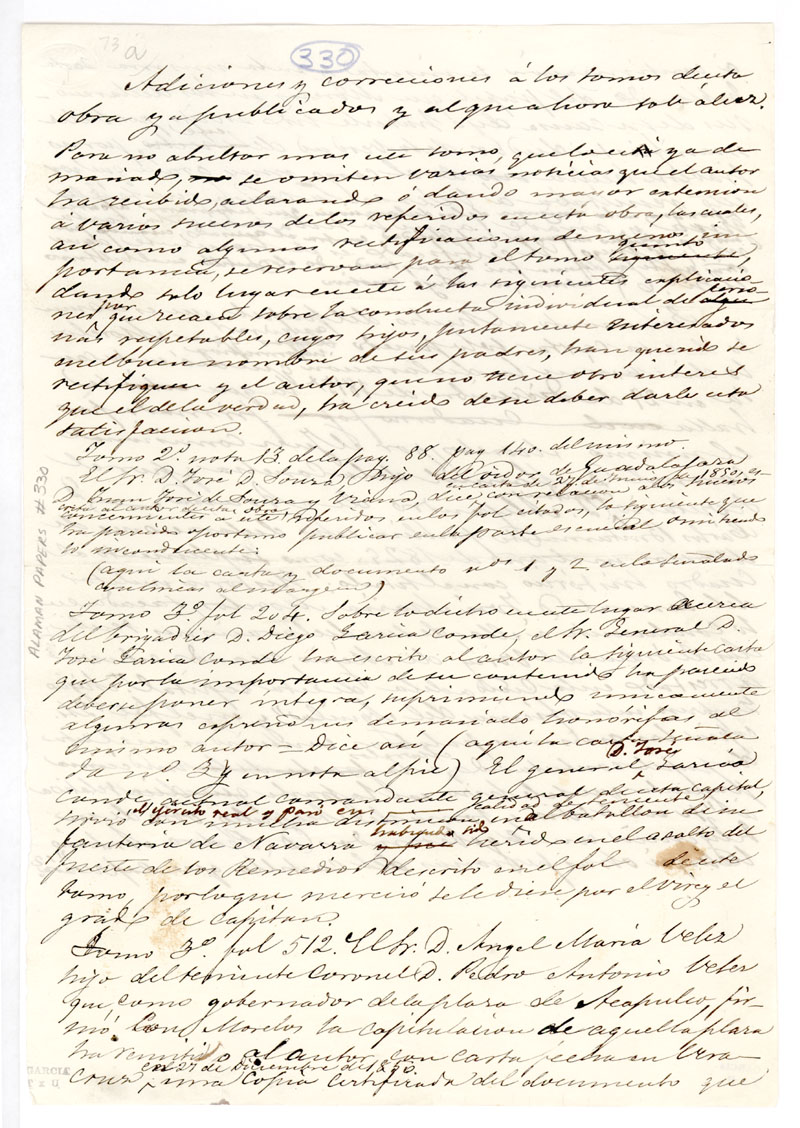 73 a
330
Adiciones y correcciones á los tomos de esta
obra ya publicados y al que ahora sale á luz.
Para no abultar mas este tomo, que lo está ya de
masiado, se omiten varias noticias que el autor
ha recibido, aclarando ó dando mayor extension
á varios sucesos de los referidos en esta obra, las cuales,
asi como algunas rectificaciones de menos im
portancia, se reservan para el tomo siguiente, quinto
dando solo lugar en este á las siguientes explicacio-
nes, por que recaen sobre la conducta individual de perso-
nas respetables, cuyos hijos, justamente interesados
en el buen nombre de sus padres, han querido se
rectifiquen y el autor, que no tiene otro interes
que el de la verdad, ha creido de su deber darles esta
satisfaccion.
Tomo 2º nota 13 de la pag. 88. pag 140. del mismo.
El Sr. D. José D. Souza hijo del oidor de Guadalajara
D. Juan José de Souza y Viana, dice con relacion á los sucesos
carta al autor de esta obra
concernientes á este referidos en los fol citados, lo siguiente que
ha parecido oportuno publicar en la parte esencial omitiendo
lo inconducente:
(aqui la carta y documento nos 1 y 2 en lo señalado
con lineas al margen)
Tomo 3º fol 204. Sobre lo dicho en este lugar acerca
del brigadier D. Diego Garcia Conde, el Sr. General D.
José Garcia Conde ha escrito al autor la siguiente carta
que por la importancia de su contenido ha parecido
deberse poner integra, suprimiendo unicamente
algunas espresiones demasiado honorificas al
mismo autor = Dice asi (aqui la carta señala
da nº. 3 y en nota al pie) El general D. José Garcia
Conde actual comandante general de esta capital,
el ejército real y pasó en calidad de teniente
sirvió con mucha distincion en el batallon de in
fanteria de Navarra habiendo sido herido en el asalto del
fuerte de los Remedios descrito en el fol de este
tomo, por lo que mereció se le diese por el Virey el
grado de capitan.
Tomo 3º fol 512. El Sr. D. Angel Maria Velez
hijo del teniente Coronel D. Pedro Antonio Velez
que, como gobernador de la plaza de Acapulco, fir-
mó con Morelos la capitulacion de aquella plaza
ha remitido al autor con carta fecha en Vera-
cruz en 27 de Diciembre de 1850. una copia certificada del documento que
ALAMAN PAPERS #330
GARCIA